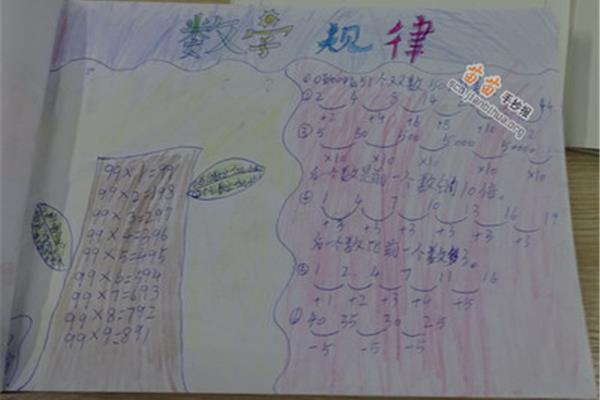 数学 规律
苗苗
手抄报
99×1=99
99×2=198
99×3=297
99×4=396
99×5=495
99×6=594
99×7=693
99×8=792
99×9=891
51个双数
② 2 4 14 44
+2 +4 +6 +8 +10
③ 5 50 500 5000 50000
×10 ×10 ×10 ×10 ×10
后一个数是前一个数的10倍。
④ 1 4 7 10 13 16 19
+3 +3 +3 +3 +3 +3
后一个数比前一个数多3。
⑤ 1 2 4 7 11 16
+1 +2 +3 +4 +5
40 35 30 25
-5 -5 -5